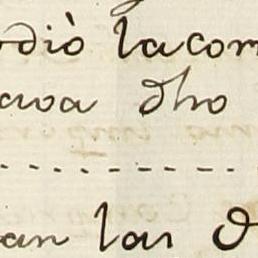 rdiò lacom
ava dho
an las d